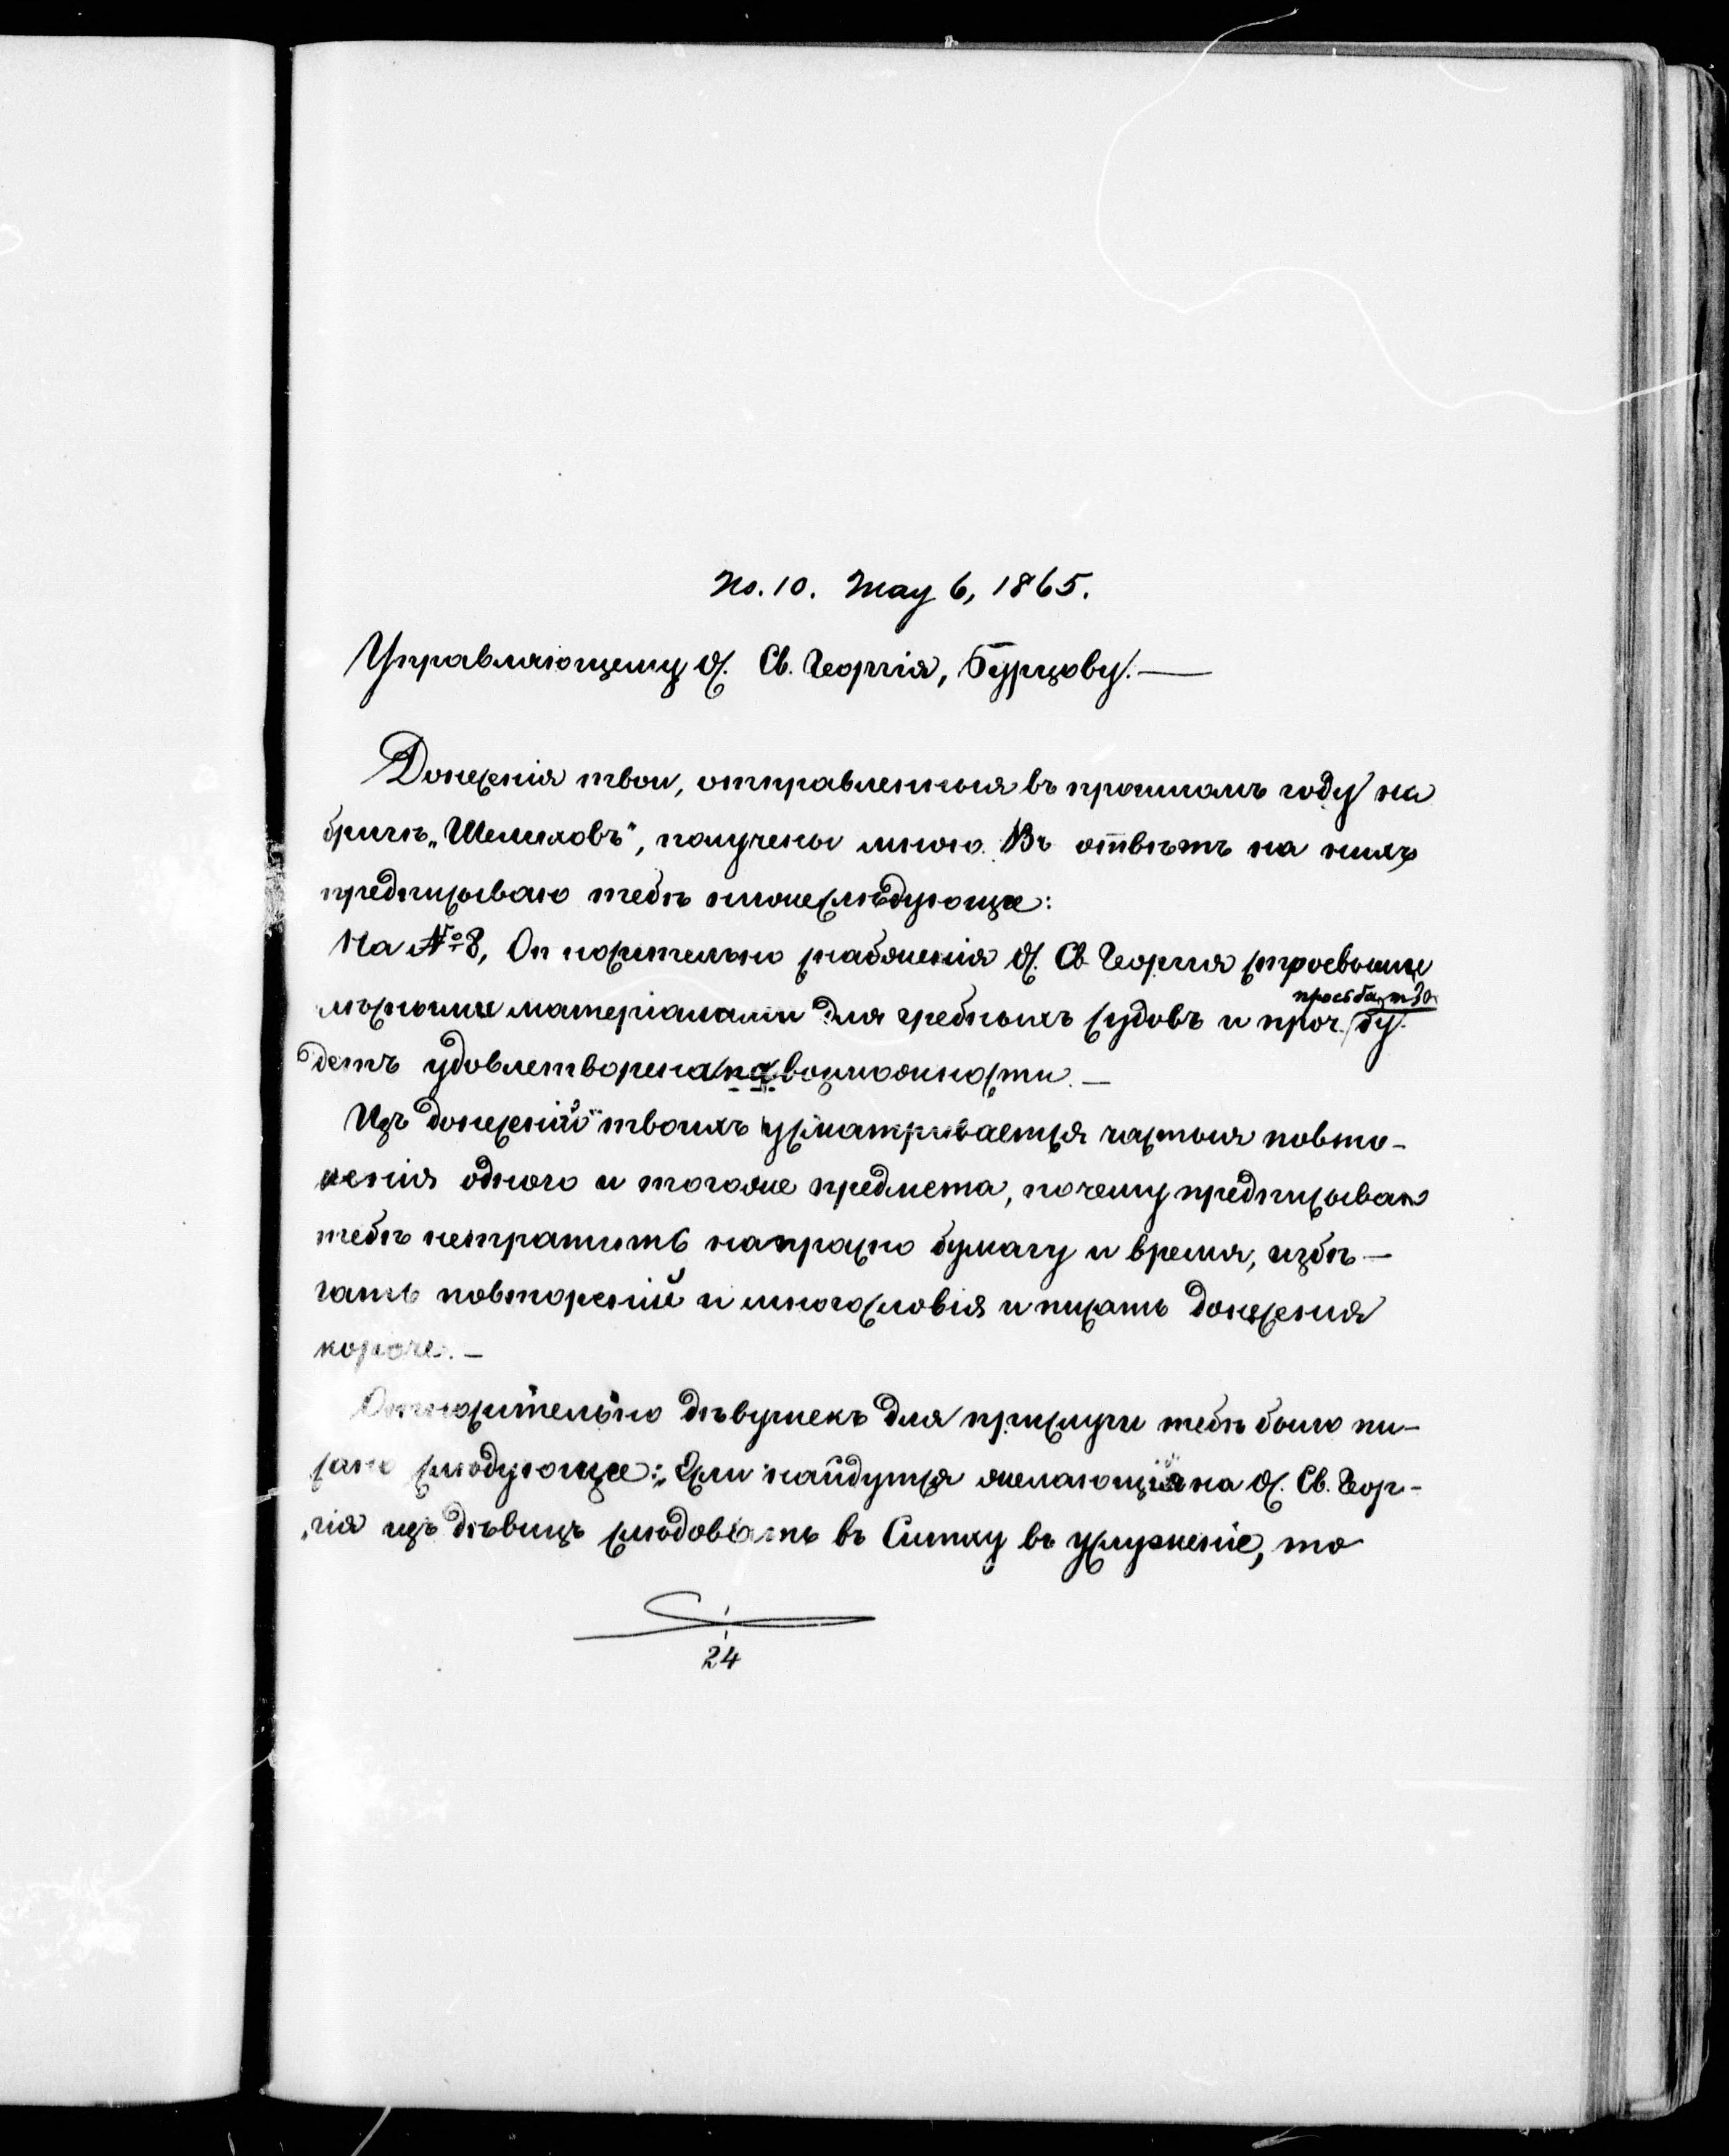 No. 10. May 6, 1865.
Управляющему О. Св. Георгія, Бурцову. —
Донесенія твои, отправленныя въ прошломъ году на
бригѣ „Шелиховъ", получены мною. Въ отвѣтъ на нихъ
предписываю тебѣ нижеслѣдующее:
На № 8, Относительно снабженія О. Св. Георгія строевыми
лѣсными матеріалами для гребныхъ судовъ и проч. бу-
просьба
детъ удовлетворена по возможности. —
Изъ донесеній твоихъ усматривается частыя повто-
ренія одного и тогоже предмета, почему предписываю
тебѣ нетратить напрасно бумагу и время, избѣ-
гать повтореній и многословія и писать донесенія
короче. —
Относительно дѣвушекъ для прислуги тебѣ было пи-
сано слѣдующее: „Если найдутся желающія на О. Св. Геор-
гія изъ дѣвицъ слѣдовать въ Ситху въ услуженіе, то
24